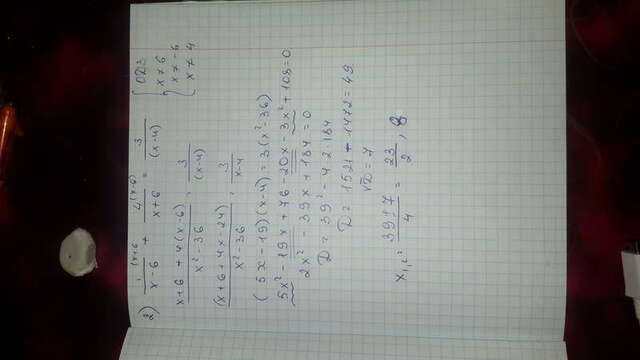 2) 1^(x+6 / x-6 + 4^(x-6) / x+6 = 3 / (x-4)
{ ОДЗ
x ≠ 6
x ≠ -6
x ≠ 4
x+6+4(x-6) / x²-36 = 3 / (x-4)
(x+6+4x-24) / x²-36 = 3 / x-4
(5x-19)(x-4) = 3(x²-36)
5x²-19x+76-20x-3x²+108=0
2x²-39x+184=0
D = 39²-4·2·184
D = 1521-1472=49
√D = 7
x₁,₂ = 39±7 / 4 = 23 / 2 , 8